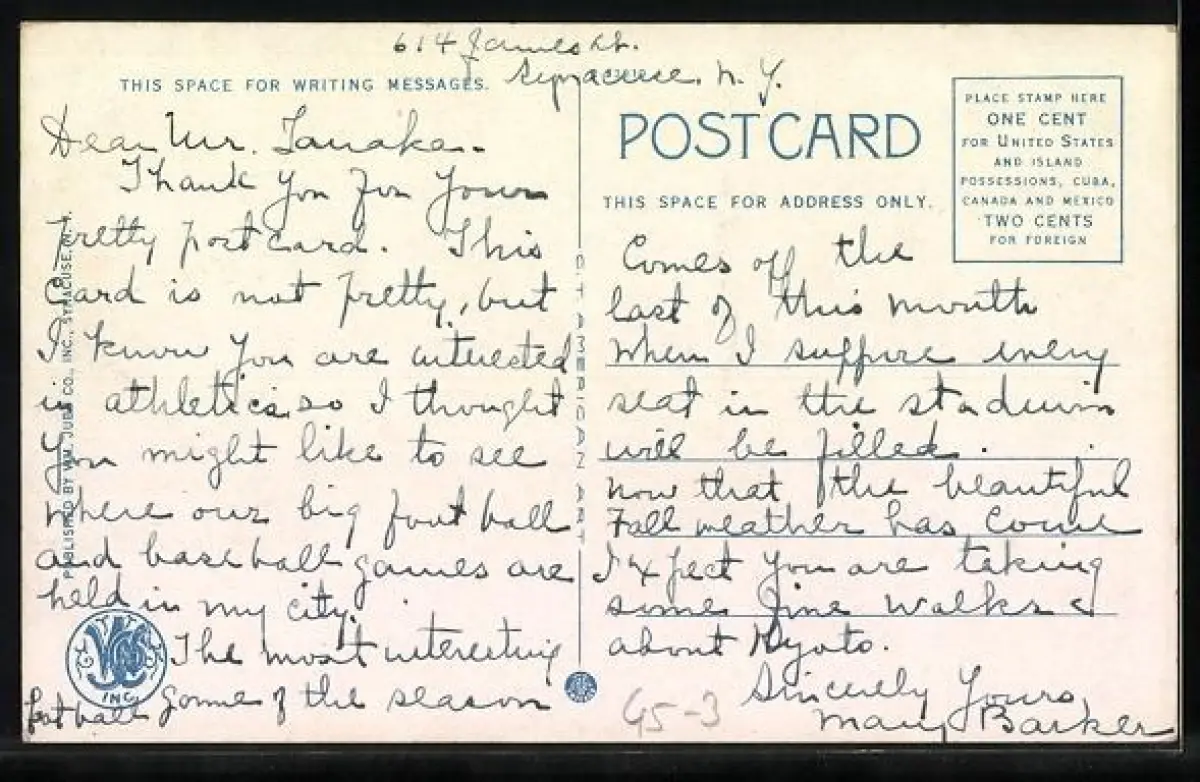 614 James St.
Syracuse, N. Y.
THIS SPACE FOR WRITING MESSAGES.
Dear Mr. Tanaka.
Thank you for your
pretty postcard. This
Card is not pretty, but
I know you are interested
in athletics, so I thought
you might like to see
where our big foot ball
and base ball games are
held in my city.
The most interesting
foot ball game of the season
POST CARD
THIS SPACE FOR ADDRESS ONLY.
PLACE STAMP HERE
ONE CENT
FOR UNITED STATES
AND ISLAND
POSSESSIONS, CUBA,
CANADA AND MEXICO
TWO CENTS
FOR FOREIGN
Comes off the
last of this month
when I suppose every
seat in the stadium
will be filled.
Now that the beautiful
Fall weather has come
I expect you are taking
some fine walks
about Kyoto.
Sincerely Yours,
Mary Barker
PUBLISHED BY WM. JUBB CO., INC., SYRACUSE, N.Y.
C.T. AMERICAN ART
INC.
G5-3